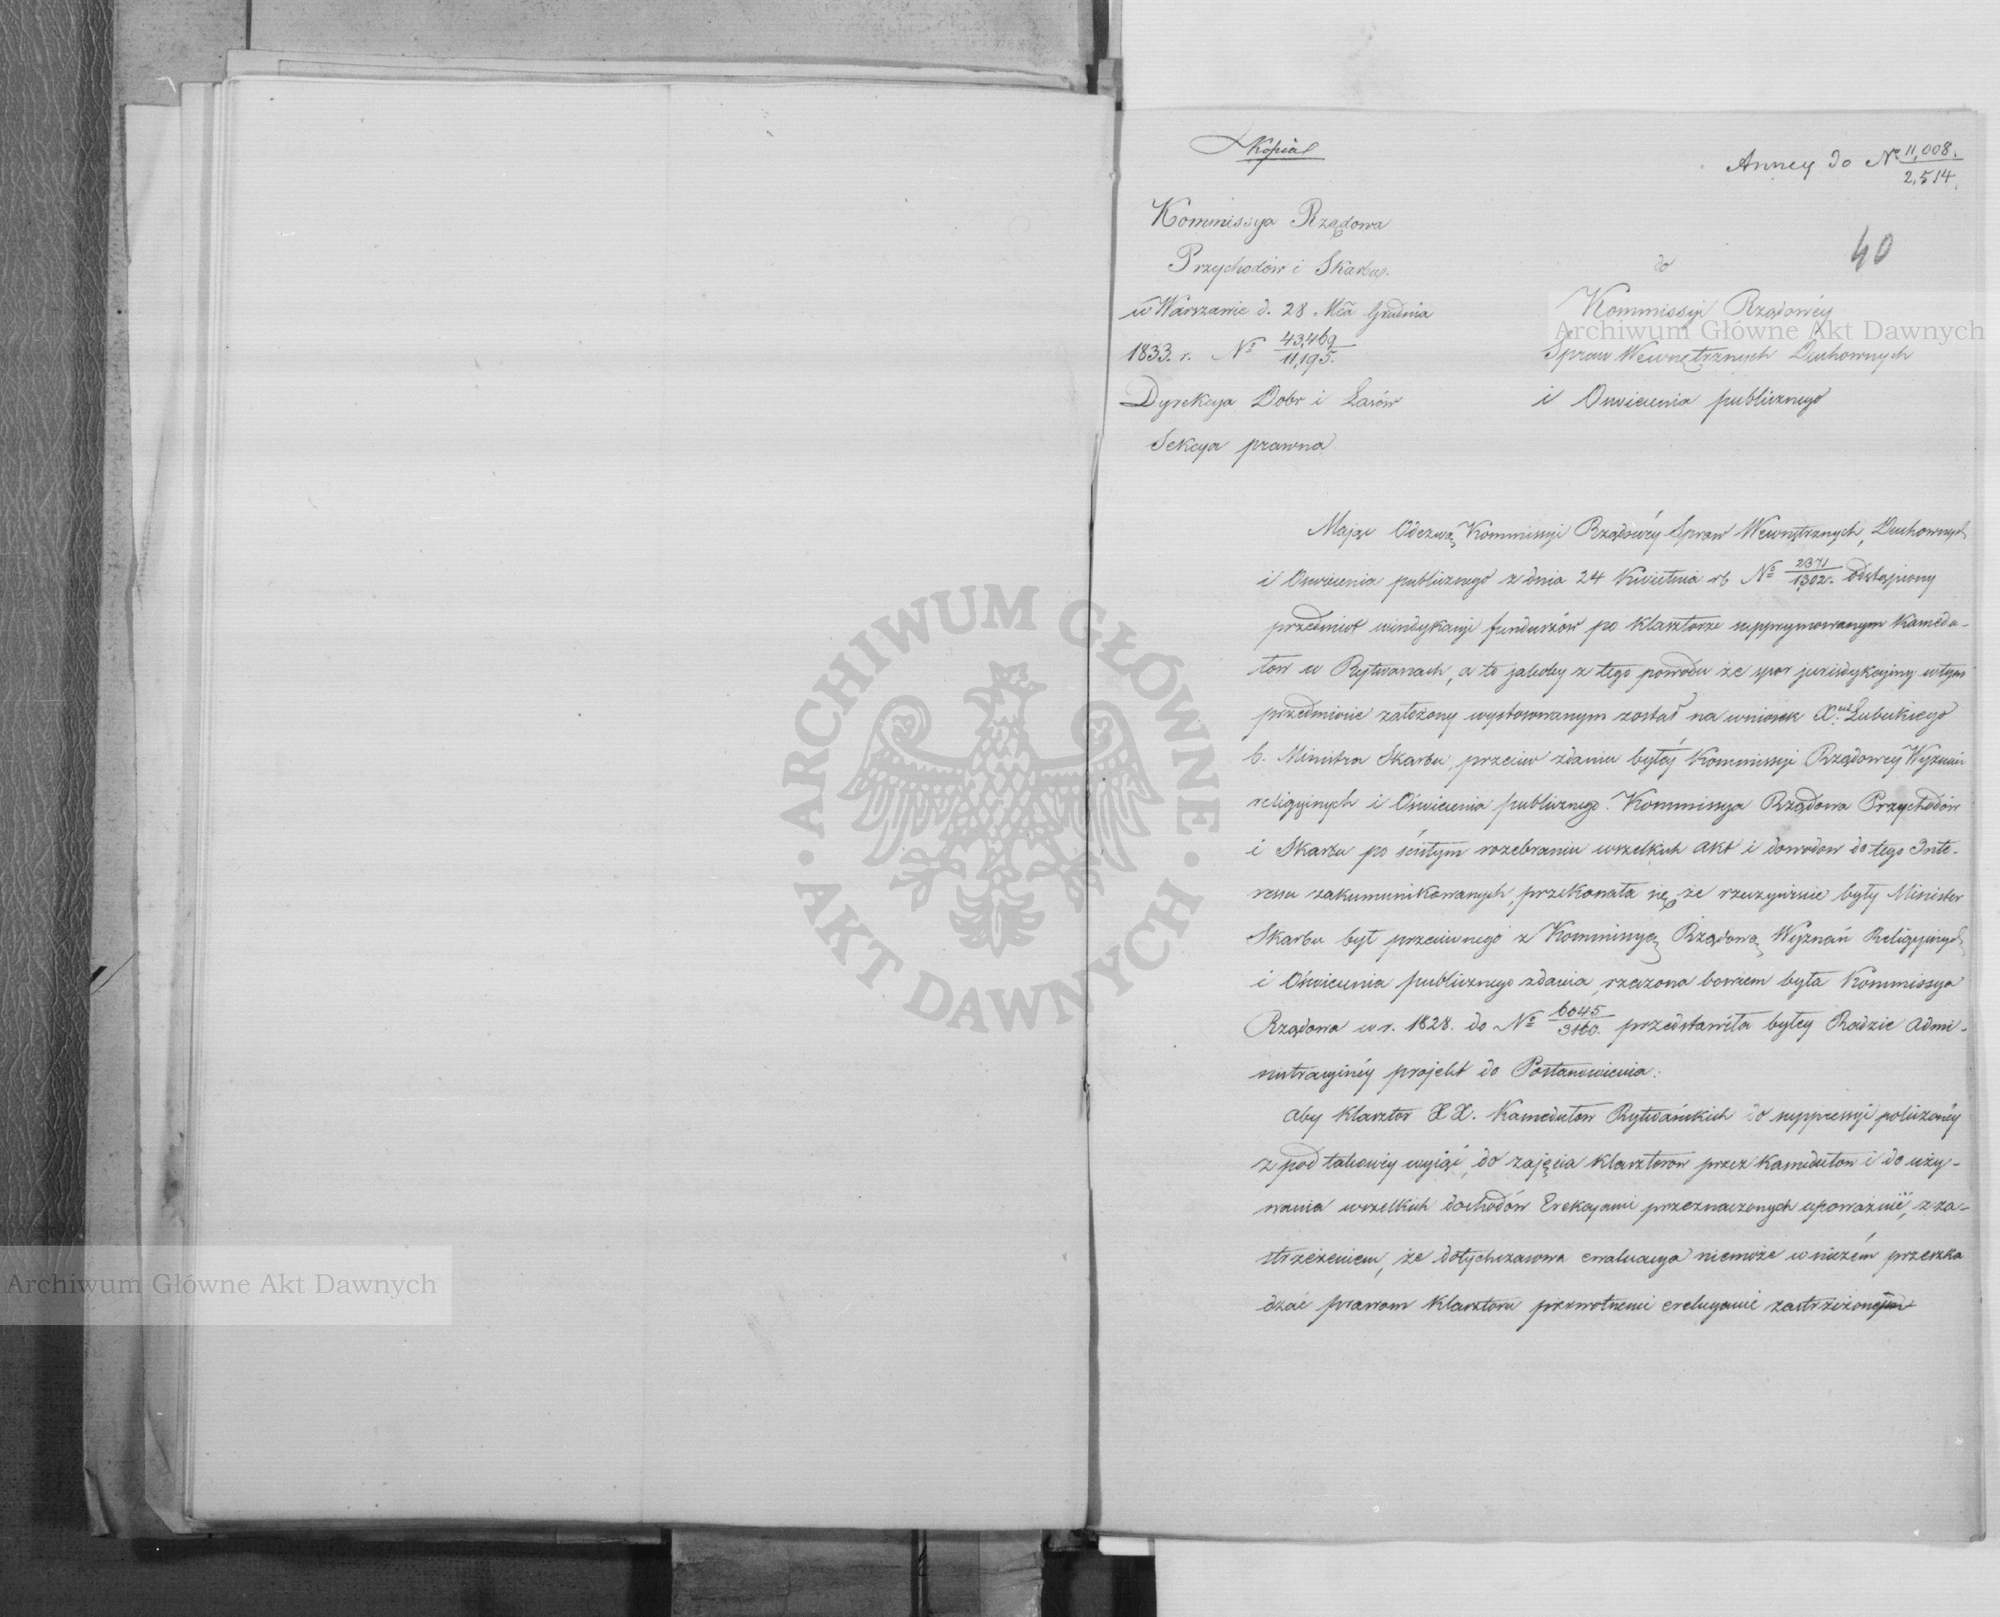 Kopia
Annex do Nº 11,008./2,514.
40
Kommissya Rządowa
Przychodów i Skarbu.
w Warszawie d. 28 Mca Grudnia
1833. r. Nº 43,469/11,195.
Dyrekcya Dobr i Lasów
Sekcya prawna
do
Kommissyi Rządowéy
Spraw Wewnętrznych Duchownych
i Oswiecenia publicznego
Mając Odezwą Kommissyi Rządowéy Spraw Wewnętrznych, Duchownych
i Oswiecenia publicznego z dnia 24 Kwietnia rb Nº 2371/1302. odstąpiony
przedmiot windykacyi funduszów po klasztorze supprymowanym Kamedu-
łów w Rytwianach, a to jakoby z tego powodu że spor jurisdykcyiny w tym
przedmiocie założony wystosowanym został na wniosek Xcia Lubeckiego
b. Ministra Skarbu, przeciw zdaniu byłéy Kommissyi Rządowéy Wyznań
religyinych i Oświecenia publicznego. Kommissya Rządowa Przychodów
i Skarbu po ścisłym rozebraniu wszelkich akt i dowodow do tego Inte-
ressu zakumunikowanych, przekonała się, że rzeczywiscie były Minister
Skarbu był przeciwnego z Kommissyą Rządową Wyznań Religyinych
i Oświecenia publicznego zdania, rzeczona bowiem była Kommissya
Rządowa w r. 1828. do Nº 6045/3160. przedstawiła byłey Radzie Admi-
nistracyinéy projekt do Postanowienia:
aby klasztor XX. Kamedułow Rytwiańskich do suppressyi policzonéy
z pod takowéy wyiąć, do zajęcia klasztorow przez Kamedułow i do uży-
wania wszelkich dochodów Erekcyami przeznaczonych upoważnić, z za-
strzeżeniem, że dotychczasowa ewaluacya niemoże w niczém przeszka
dzać prawom klasztoru pierwotnemi erekcyami zastrzeżonym
Archiwum Główne Akt Dawnych
ARCHIWUM GŁÓWNE · AKT DAWNYCH ·
Archiwum Główne Akt Dawnych